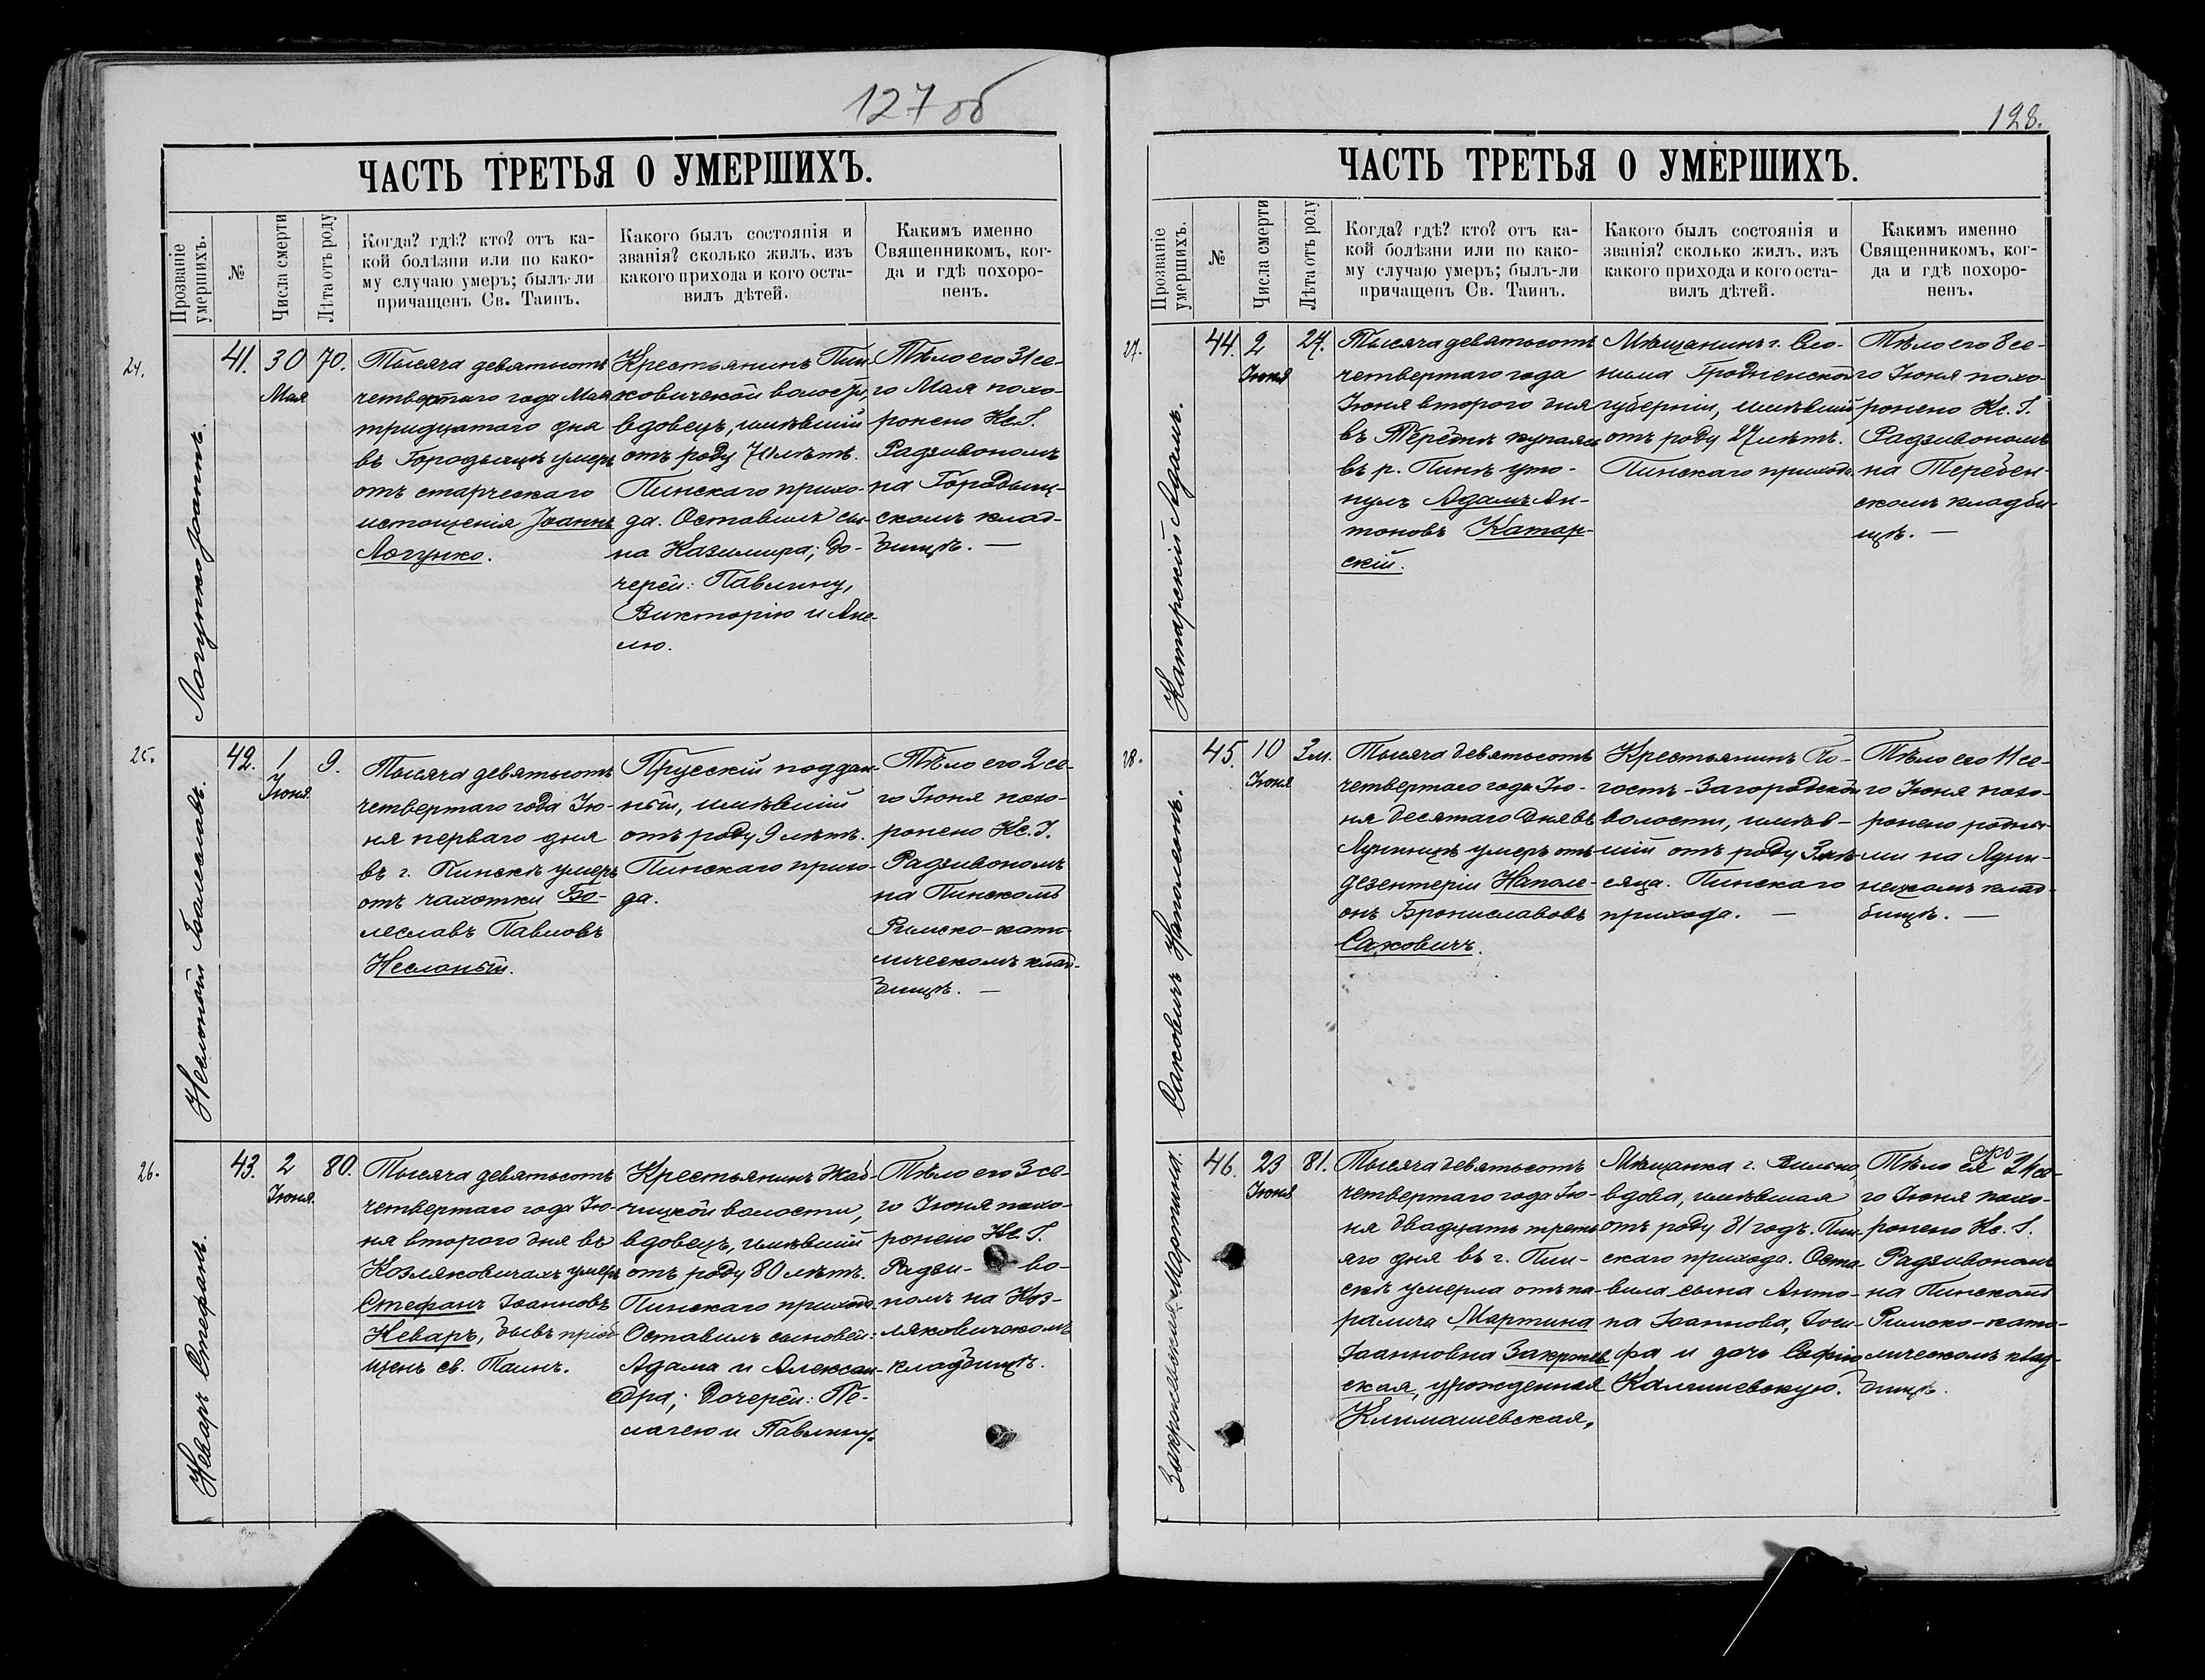 127 об
ЧАСТЬ ТРЕТЬЯ О УМЕРШИХЪ.
Прозваніе умершихъ.
№
Числа смерти
Лѣта отъ роду
Когда? гдѣ? кто? отъ ка-
кой болѣзни или по како-
му случаю умеръ; былъ-ли
причащенъ Св. Таинъ.
Какого былъ состоянія и
званія? сколько жилъ, изъ
какого прихода и кого оста-
вилъ дѣтей.
Какимъ именно
Священникомъ, ког-
да и гдѣ похоро-
ненъ.
24.
Логунко Іоаннъ.
41.
30
Мая
70.
Тысяча девятьсотъ
четвертаго года Мая
тридцатаго дня
въ Городыщѣ умеръ
отъ старческаго
истощенія Іоаннъ
Логунко.
Крестьянинъ Пин-
ковичской волости,
вдовецъ, имѣвшій
отъ роду 70 лѣтъ.
Пинскаго прихо-
да. Оставилъ сы-
на Казимира; до-
черей: Павлину,
Викторію и Ане-
лю.
Тѣло его 31 се-
го Мая похо-
ронено Кс. І.
Радзивономъ
на Городыщ-
скомъ клад-
бищѣ. —
25.
Неслоный Болеславъ.
42.
1
Іюня.
9.
Тысяча девятьсотъ
четвертаго года Ію-
ня перваго дня
въ г. Пинскѣ умеръ
отъ чахотки Бо-
леславъ Павловъ
Неслоный.
Прусскій поддан-
ный, имѣвшій
отъ роду 9 лѣтъ.
Пинскаго прихо-
да.
Тѣло его 2 се-
го Іюня похо-
ронено Кс. І.
Радзивономъ
на Пинскомъ
Римско-като-
лическомъ клад-
бищѣ. —
26.
Неваръ Стефанъ.
43.
2
Іюня.
80.
Тысяча девятьсотъ
четвертаго года Ію-
ня второго дня въ
Козляковичахъ умеръ
Стефанъ Іоанновъ
Неваръ, бывъ пріоб-
щенъ св. Таинъ.
Крестьянинъ Жаб-
чицкой волости,
вдовецъ, имѣвшій
отъ роду 80 лѣтъ.
Пинскаго прихода.
Оставилъ сыновей:
Адама и Алексан-
дра; дочерей: Пе-
лагею и Павлину.
Тѣло его 3 се-
го Іюня похо-
ронено Кс. І.
Радзи- во-
номъ на Коз-
ляковичскомъ
кладбищѣ.
128.
ЧАСТЬ ТРЕТЬЯ О УМЕРШИХЪ.
Прозваніе умершихъ.
№
Числа смерти
Лѣта отъ роду
Когда? гдѣ? кто? отъ ка-
кой болѣзни или по како-
му случаю умеръ; былъ-ли
причащенъ Св. Таинъ.
Какого былъ состоянія и
званія? сколько жилъ, изъ
какого прихода и кого оста-
вилъ дѣтей.
Какимъ именно
Священникомъ, ког-
да и гдѣ похоро-
ненъ.
27.
Катарскій Адамъ.
44.
2
Іюня
27.
Тысяча девятьсотъ
четвертаго года
Іюня второго дня
въ Теребнѣ купаясь
въ р. Пинѣ уто-
нулъ Адамъ Ан-
тоновъ Катар-
скій.
Мѣщанинъ г. Сло-
нима Гродненской
губерніи, имѣвшій
отъ роду 27 лѣтъ.
Пинскаго прихода.
Тѣло его 8 се-
го Іюня похо-
ронено Кс. І.
Радзивономъ
на Теребен-
скомъ кладби-
щѣ. —
28.
Саковичъ Наполеонъ.
45.
10
Іюня
3 м.
Тысяча девятьсотъ
четвертаго года Ію-
ня десятаго дня въ
Лунинцѣ умеръ отъ
дезентеріи Наполе-
онъ Брониславовъ
Саковичъ.
Крестьянинъ По-
гостъ-Загородской
волости, имѣв-
шій отъ роду 3 мѣ-
сяца. Пинскаго
прихода. —
Тѣло его 11 се-
го Іюня похо-
ронено родны-
ми на Луни-
нецкомъ клад-
бищѣ. —
46.
23
Іюня
81.
Тысяча девятьсотъ
четвертаго года Ію-
ня двадцать треть-
яго дня въ г. Пин-
скѣ умерла отъ па-
ралича Мартина
Іоанновна Закржев-
ская, урожденная
Климашевская.
Мѣщанка г. Вильно,
вдова, имѣвшая
отъ роду 81 годъ. Пин-
скаго прихода. Оста-
вила сына Анто-
на Іоаннова, Іоси-
фа и дочь Софію
Калишевскую.
Тѣло ея 24 се-
го Іюня похо-
ронено Кс. І.
Радзивономъ
на Пинскомъ
Римско-като-
лическомъ клад-
бищѣ.